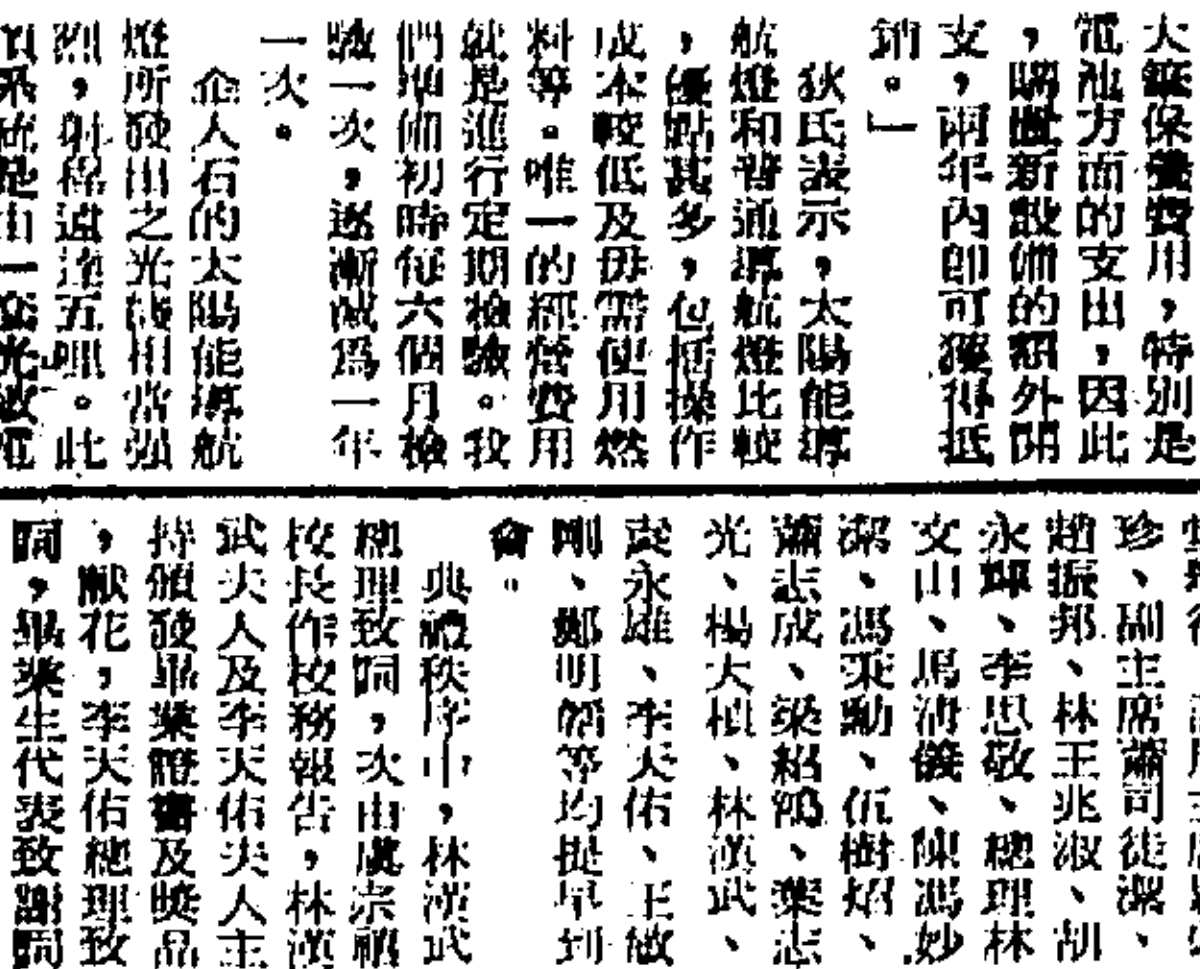 大筆保養費用，特別是
電池方面的支出，因此
，購置新設備的額外開
支，兩年內即可獲得抵
銷。」
狄氏表示，太陽能導
航燈和普通導航燈比較
，優點甚多，包括操作
成本較低及毋需使用燃
料等。唯一的經營費用
就是進行定期檢驗。我
們準備初時每六個月檢
驗一次，逐漸減爲一年
一次。
企人石的太陽能導航
燈所發出之光綫相當强
烈，射程遠達五哩。此
系統是由一套光波電
珍、副主席蕭司徒潔、
趙振邦、林王兆淑、胡
永輝、李思敬、總理林
文山、馬清儀、陳馮妙
潔、馮秉勳、伍樹焰、
蕭志成、梁紹鴻、葉志
光、楊大楨、林漢武、
袁永雄、李天佑、王敏
剛、鄭明等均提早到
會。
典禮秩序中，林漢武
總理致詞，次由虞宗禎
校長作校務報告，林漢
武夫人及李天佑夫人主
持頒發畢業證書及奬品
，獻花，李天佑總理致
詞，畢業生代表致謝詞